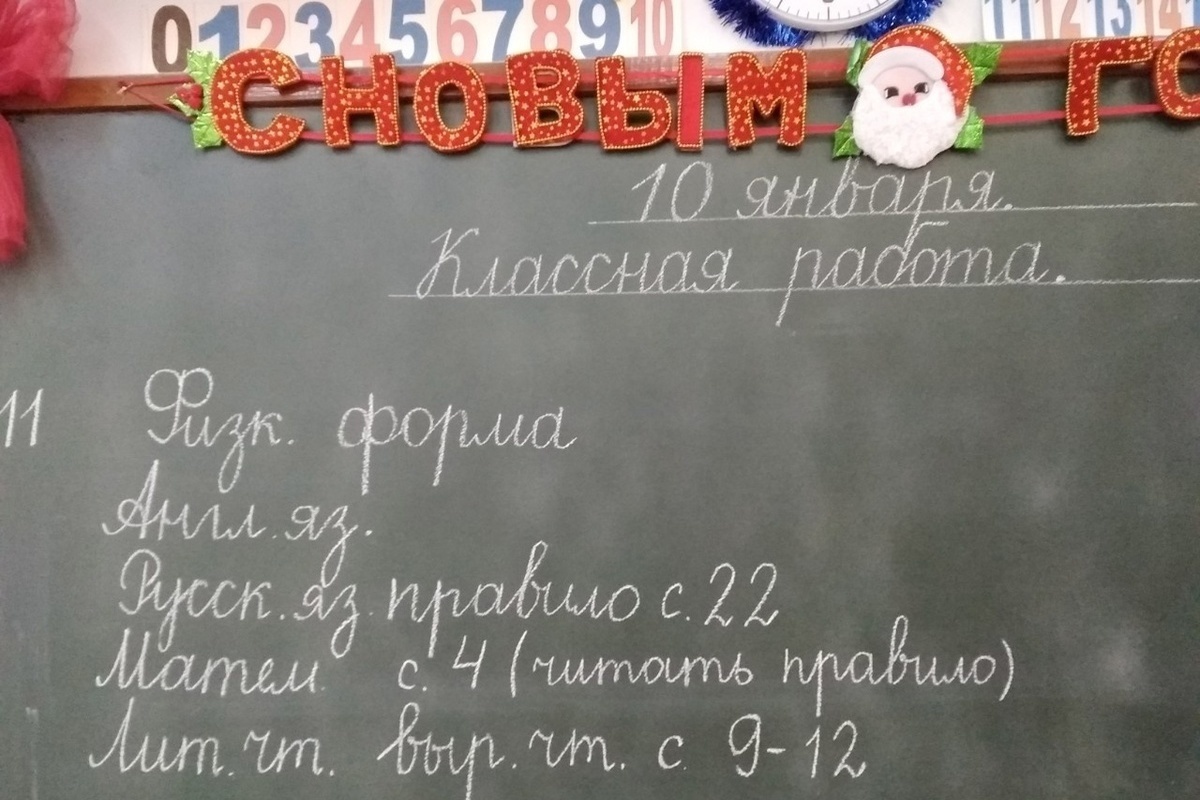 0 1 2 3 4 5 6 7 8 9 10 11 12 13 14
С НОВЫМ ГО
10 января.
Классная работа.
11 Физк. форма
Англ. яз.
Русск. яз. правило с. 22
Матем. с. 4 (читать правило)
Лит. чт. выр. чт. с. 9-12